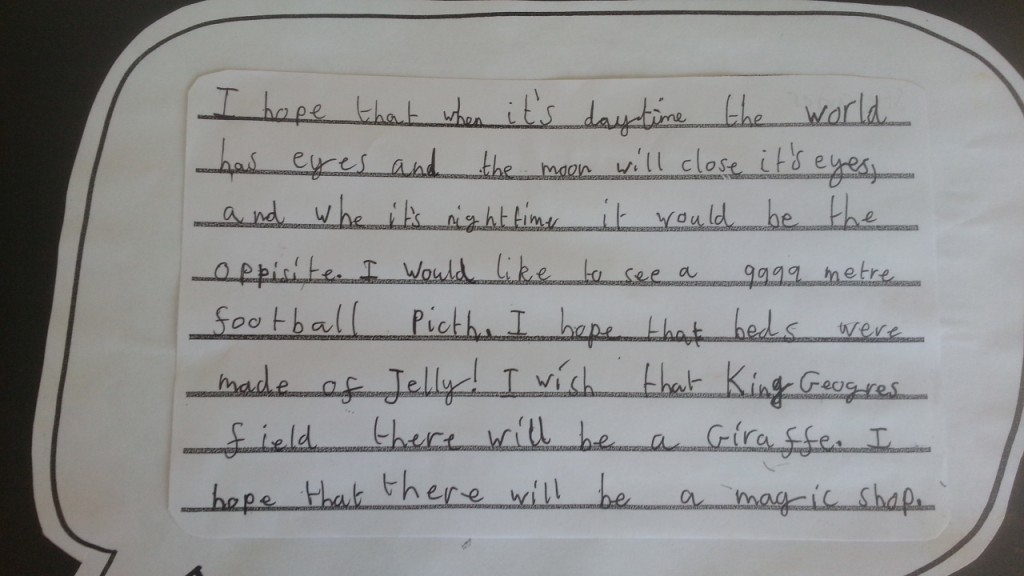 I hope that when it's daytime the world
has eyes and the moon will close it's eyes,
and whe it's nighttime it would be the
oppisite. I would like to see a 9999 metre
football Picth. I hope that beds were
made of Jelly! I wish that King Geogres
field there will be a Giraffe. I
hope that there will be a magic shop.